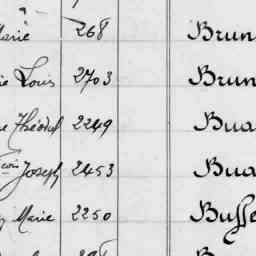 Marie 268 Brun
ie Louis 2703 Brun
e Théodul 2249 Bua
çois Joseph 2453 Bua
Marie 2250 Busse